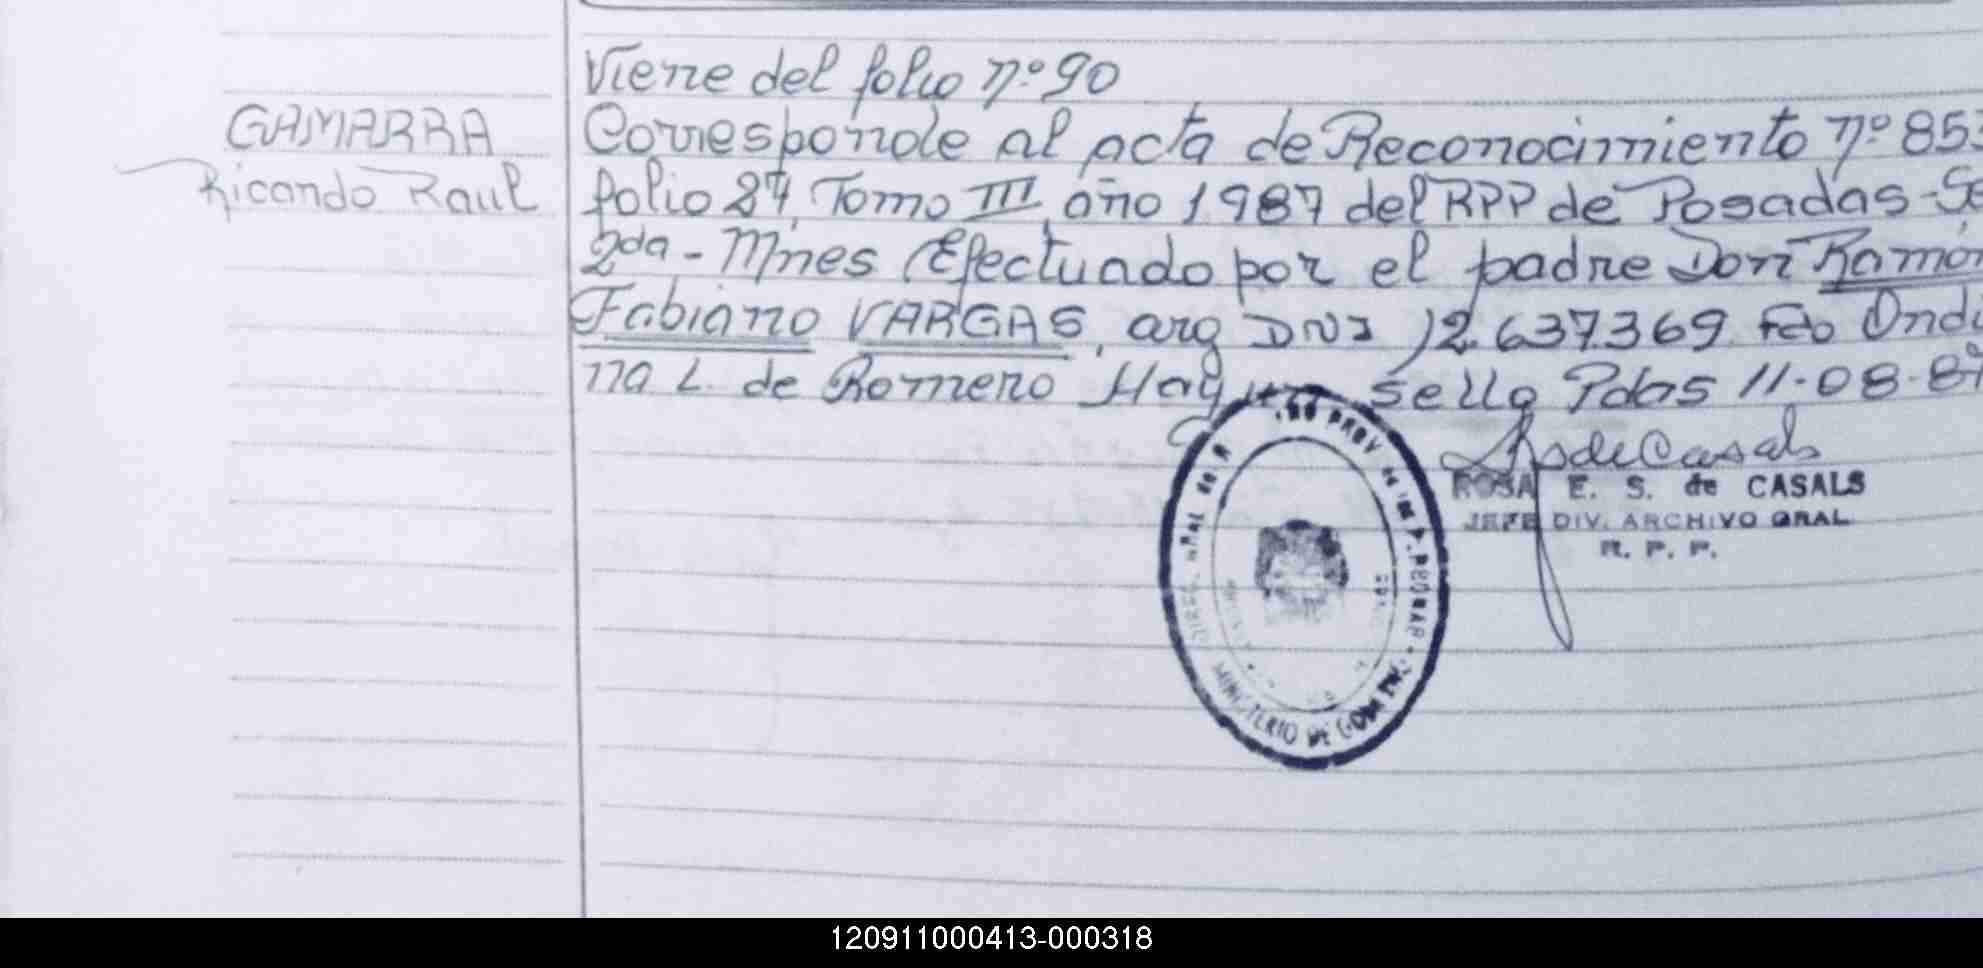 Viene del folio nº 90
GAMARRA
Ricardo Raul
Corresponde al acta de Reconocimiento nº 853
folio 27, Tomo III, año 1987 del RPP de Posadas-Se
2da - Mnes Efectuado por el padre Don Ramón
Fabiano VARGAS, arg DNI 12.637369 Fdo Ondi
na L. de Romero Hay un sello Pdas 11-08-87
ROSA E. S. de CASALS
JEFE DIV. ARCHIVO GRAL
R. P. P.
MINISTERIO DE GOBIERNO
120911000413-000318